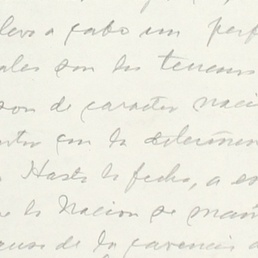 llevo a cabo un perf
ales son los terrenos
son de caracter naci
con la
Hasta la fecha, a
la Nacion se
de la carencia d